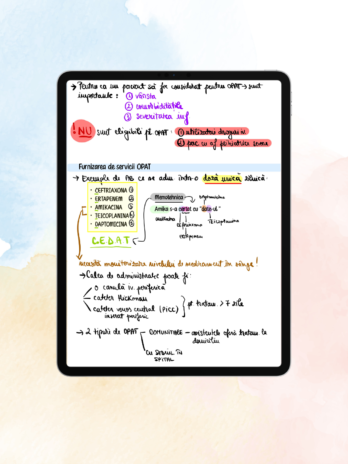 → Pentru ca un pacient să fie considerat pentru OPAT → sunt
importante : ① vârsta
② comorbiditățile
③ severitatea inf
! NU sunt eligibili pt OPAT : ① utilizatorii droguri iv
② pac cu af. psihiatrice severe
Furnizarea de servicii OPAT
→ Exemple de AB ce se adm într-o doză unică zilnică:
• CEFTRIAXONA
• ERTAPENEM
• AMIKACINA
• TEICOPLANINA
• DAPTOMICINA
CEDAT
Mnemotehnica
Amika s-a certat cu
ertapenem
teicoplanina
necesită monitorizarea nivelului de medicament în sânge !
→ Calea de administrare poate fi:
o canulă iv periferică
cateter Hickman
cateter venos central (PICC)
inserat periferic
pt tratam > 7 zile
→ 2 tipuri de OPAT
COMUNITARE - asistentele oferă tratam la
domiciliu
CU SEDIUL ÎN
SPITAL